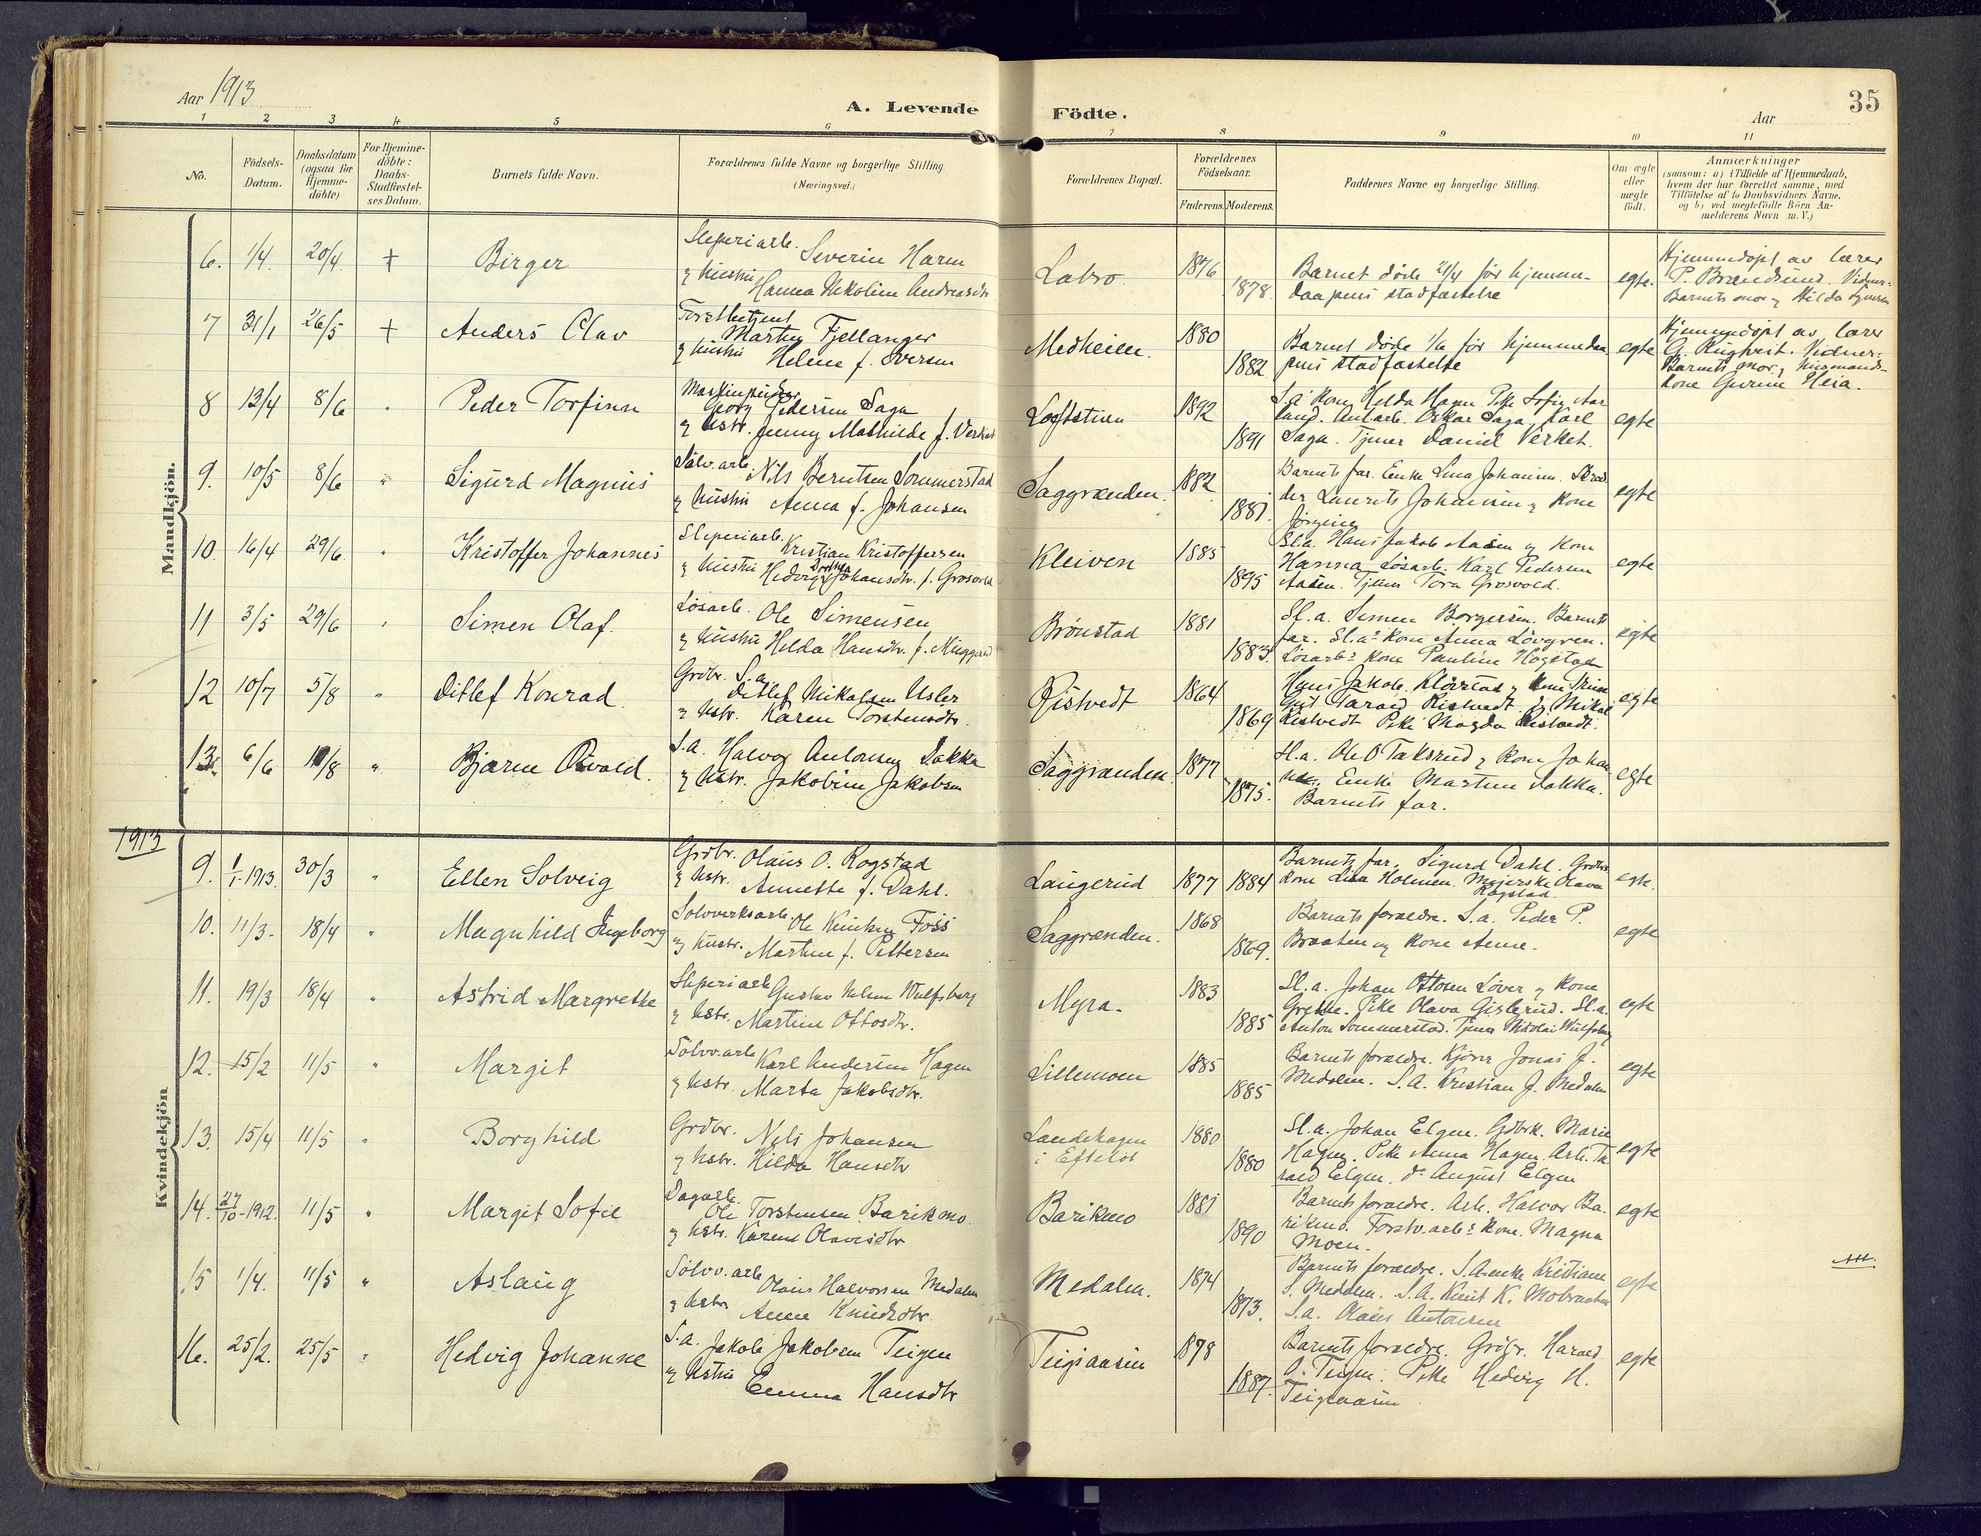 Aar 1913
A. Levende Födte.
Aar
35
1 2 3 4 5 6 7 8 9 10 11
No.
Födsels-
Datum.
Daabsdatum
(ogsaa for
Hjemme-
döbte)
For Hjemme-
döbte:
Daabs-
Stadfæstel-
ses Datum.
Barnets fulde Navn.
Forældrenes fulde Navne og borgerlige Stilling
(Næringsvei.)
Forældrenes Bopæl.
Forældrenes
Födselsaar.
Faderens. Moderens.
Faddernes Navne og borgerlige Stilling.
Om ægte
eller
uægte
födt.
Anmærkninger
(saasom: a) i Tilfælde af Hjemmedaab,
hvem der har forrettet samme, med
Tilföielse af to Daabsvidners Navne,
og b) ved uægtefödte Börn An-
melderens Navn m. V.)
Mandkjön.
6. 1/4. 20/4. + Birger
Sliperiarb. Severin Harm
og hustru Hanna Nikoline Andreasdtr
Labro. 1876 1878.
Barnet døde 21/4 før hjemme-
daapens stadfæstelse
egte.
Hjemmedøpt av lærer
P. Brandsund. Vidner:
Barnets mor og Hilda Syversen
7 31/1 26/5 + Anders Olav
Forstbetjent
Martin Fjellanger
og hustru Helene f. Iversen
Medheien. 1880 1882
Barnet døde 1/6 før hjemmedaa
pens stadfæstelse
egte
Hjemmedøpt av lærer
G. Rughvest. Vidner:
Barnets mor, husmands-
kone Gurine Heia.
8 13/4 8/6 " Peder Torfinn
Georg Pedersen Saga
og hstr. Jenny Mathilde f. Verket
Loftstuen 1892 1891
S.a kone Helda Hagen Pike Sofie Aar
lund. Anl.arb. Oskar Saga, Karl
Saga. Tjener Daniel Verket.
egte
9. 10/5 8/6 " Sigurd Magnus
Sølv.arb. Nils Berntsen Sommerstad
og hustru Anna f. Johansen
Saggrænden. 1882 1881.
Barnets far. Enke Lina Johansen. Skræd
der Laurits Johansen og kone
Jørgine
egte
10. 16/4 29/6. " Kristoffer Johannes
Sliperiarb. Kristian Kristoffersen
og hustru Hedvig Dorthea Johansdtr. f. Grosvold
Kleiven 1885 1895
Sl.a. Hans Jakob Aasen og kone
Hanna Løsarb. Karl Pedersen
Aasen. Tjener Tora Grosvold.
egte
11 3/5 29/6 " Simen Olaf.
Løsarb. Ole Simensen
og hustru Helda Hansdtr. f. Muggerud
Brönstad 1881 1883.
Sl.a. Simen Borgersen. Barnets
far. Sl.a's kone Anna Lövgren.
Løsarbs kone Pauline Hogstad
egte
12 10/7 5/8 " Ditlef Konrad.
Grdbr. S.a.
Ditlef Nikolsen Usler
og hstr. Karen Torstensdtr.
Ristvedt 1864 1869
Hans Jakob Klørstad og kone Trine
Gut Tarald Ristvedt. do Mikal
Ristvedt Pike Magda Ristvedt.
egte
13. 6/6 10/8 " Bjarne Osvald.
S.a. Halvor Antonsen Dakka
og hstr. Jakobine Jakobsen
Saggrænden 1877 1875.
Sl.a. Ole O Taksrud og kone Johan
ne. Enke Martine Dakka.
Barnets far.
egte
1913
Kvindekjön
9. 1/1-1913. 30/3 " Ellen Solveig
Grdbr. Olaus O. Rogstad
og hstr. Annette f. Dahl.
Laugerud 1877 1884
Barnets far. Sigurd Dahl. Grdbrs
kone Lina Holmen. Meierske Olava
Rogstad
egte.
10. 11/3. 18/4 " Magnhild Ingeborg
Sølvverksarb. Ole Knutsen Foss
og hustr. Martine f. Pettersen
Saggrænden. 1868 1869.
Barnets forældre. S.a. Peder P.
Braaten og kone Anne.
egte
11. 19/3 18/4 " Astrid Margrethe
Sliperiarb Gustav Nilsen Wulfsberg
og hstr. Martine Ottosdtr.
Myra. 1883 1885
Sl.a. Johan Ottosen Löver og kone
Grethe. Pike Olava Gislerud. Sl.a.
Anton Sommerstad. Tjener Nikolai Wulfsberg
egte
12. 15/2 11/5 " Margit
Sølvv.arb Karl Andersen Hagen
og hstr. Marta Jakobsdtr.
Lillemoen 1885 1885
Barnets forældre. Kjører Jonas J.
Medalen. S.A. Kristian J. Medalen
egte
13. 15/4 11/5 " Borghild
Grdbr. Nils Johansen
og hstr. Hilda Hansdtr
Landehagen
i Efteløt 1880 1880
Sl.a. Johan Elgen. Gdbrk. Marie
Hagen. Pike Anna Hagen. Arb. Ta
rald Elgen. do August Elgen
egte
14. 27/10-1912. 11/5 " Margit Sofie
Dagarb.
Ole Torstensen Barikmo.
og hstr. Karen Olavesdtr
Barikmo 1881 1890
Barnets forældre. Arb. Halvor Ba-
rikmo. Forstv.arb's kone. Magna
Moen.
egte
15 1/4. 11/5 " Aslaug
Sølvv.arb Olaus Halvorsen Medalen
og hstr Anne Knudsdtr
Medalen. 1874 1873.
Barnets forældre. S.A.enke Kristiane
S. Medalen. S.A. Knut K. Mobraaten
S.a. Olaus Antonsen
egte
16. 25/2. 25/5 " Hedvig Johanne
S.a. Jakob Jakobsen Teigen
og hstru Emma Hansdtr
Teigaasen 1878 1887.
Barnets forældre. Grdbr. Harald
A. Teigen. Pike Hedvig H.
Teigaasen
egte